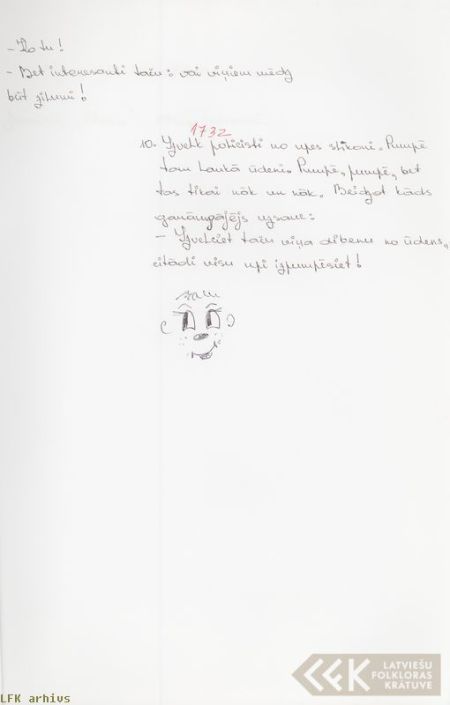 - Ko tu!
- Bet interesanti taču: vai viņiem mēdz
būt zilumi!
1732
10. Izvelk policisti no upes slīkoni. Pumpē
tam laukā ūdeni. Pumpē, pumpē, bet
tas tikai nāk un nāk. Beidzot kāds
garāmgājējs uzsauc:
- Izvelciet taču viņa dibenu no ūdens,
citādi visu upi izpumpēsiet!
LFK
LATVIEŠU
FOLKLORAS
KRĀTUVE
LFK arhīvs